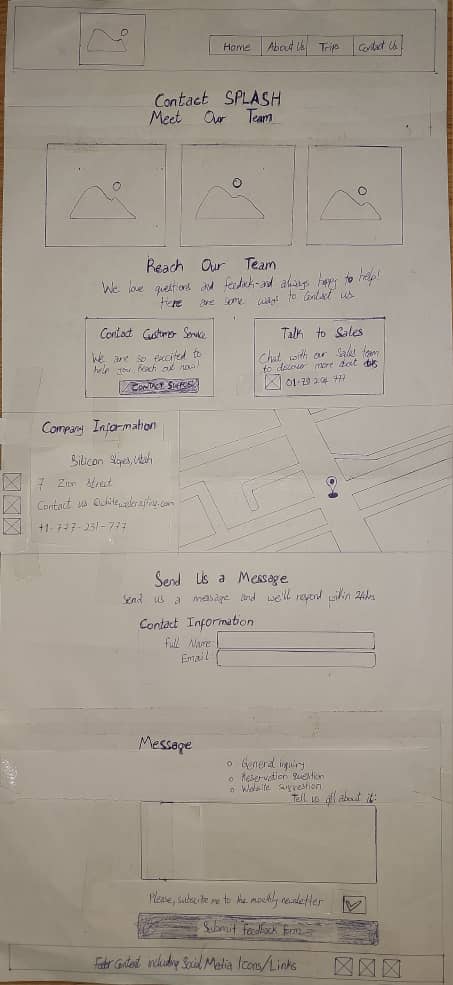 Home About Us Trips Contact Us
Contact SPLASH
Meet Our Team
Reach Our Team
We love questions and feedback-and always happy to help!
Here are some ways to contact us
Contact Customer Service
We are so excited to
help you. Reach out now!
Contact
Talk to Sales
Chat with our Sales team
to discover more about
Company Information
Silicon Slopes, Utah
7 Zion Street
Contact us
+1-777-231-777
Send Us a Message
Send us a message and we'll respond within 24hrs
Contact Information
Full Name:
Email:
Message
General inquiry
Reservation Question
Website suggestion
Tell us all about it:
Please, subscribe me to the monthly newsletter
Submit feedback form
Footer Content including Social Media Icons/Links